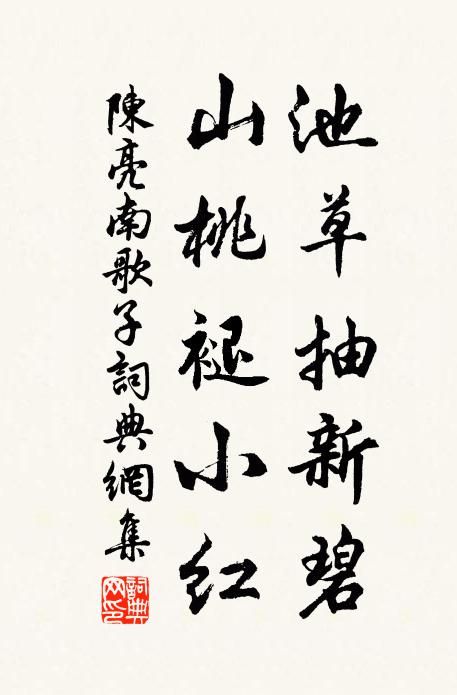 池草抽新碧
山桃褪小红
陳亮南歌子詞典網集
詞典网印